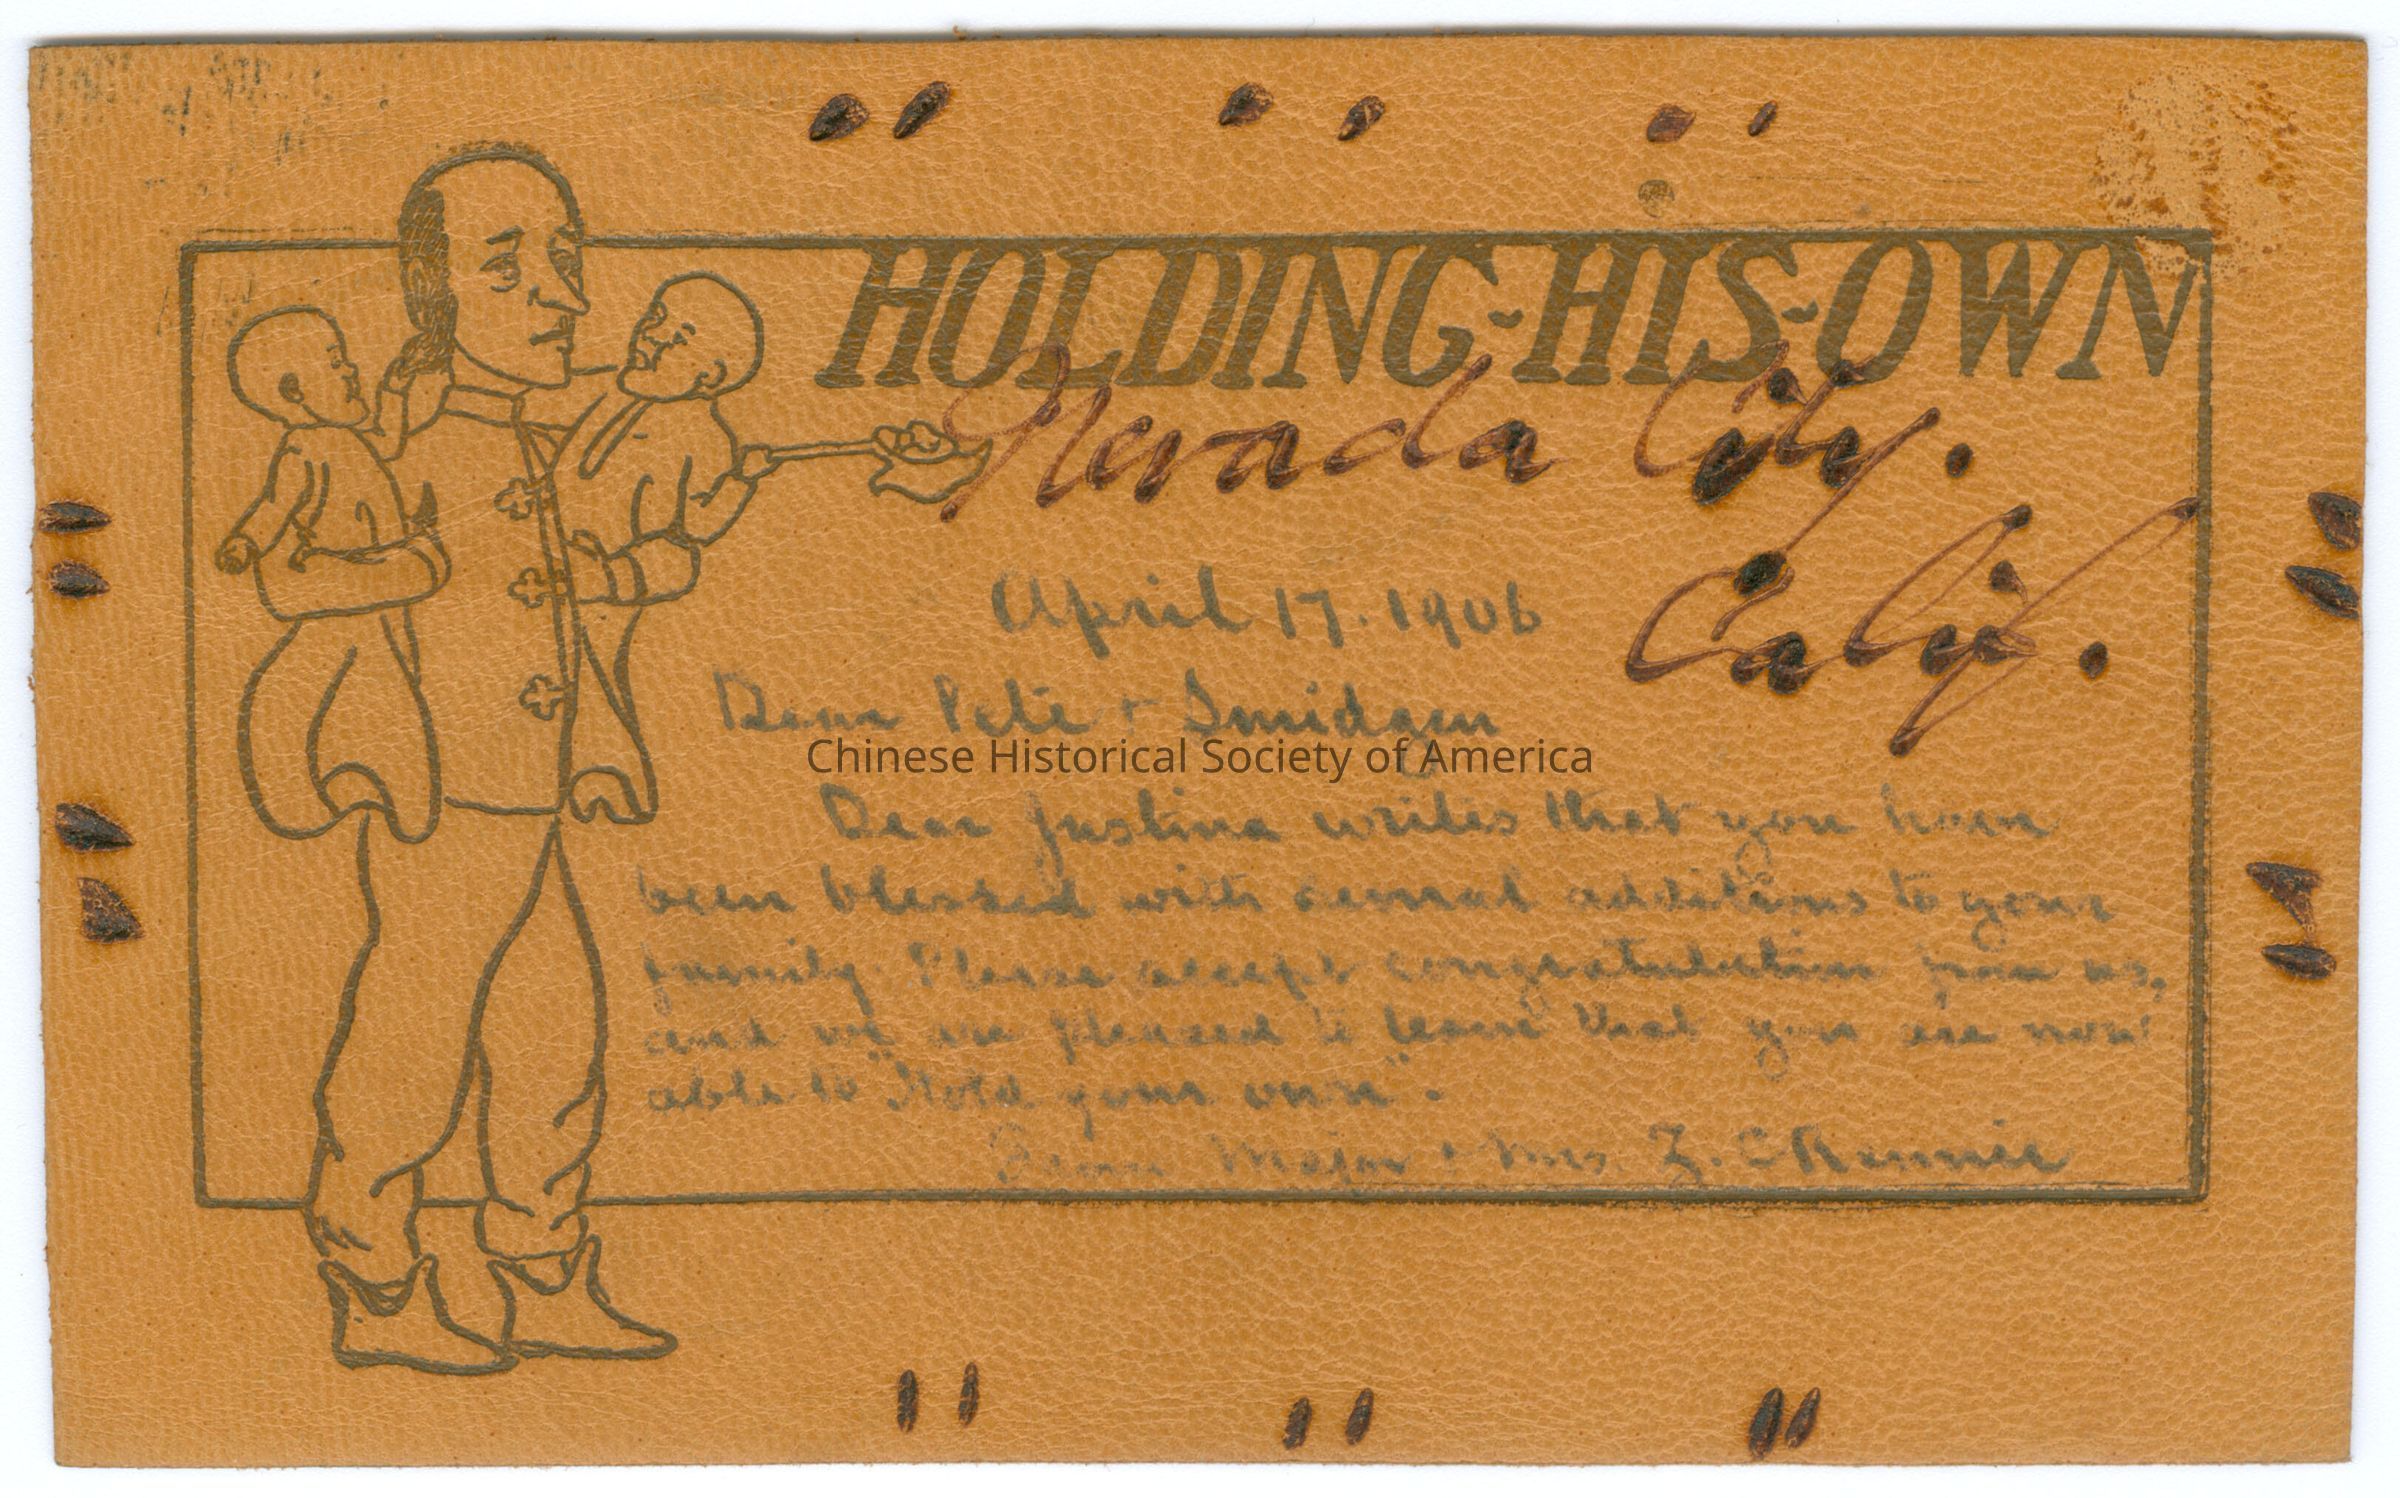 HOLDING-HIS-OWN
Nevada City.
Calif.
April 17. 1906
Dear Pete + Smidgen
Chinese Historical Society of America
Dear Justina writes that you have
been blessed with several additions to your
family. Please accept congratulation from us,
and we are pleased to learn that you are now
able to "Hold your own".
Major + Mrs. Z. C Rennie